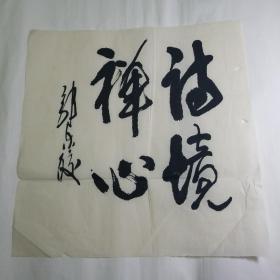 诗境
禅心